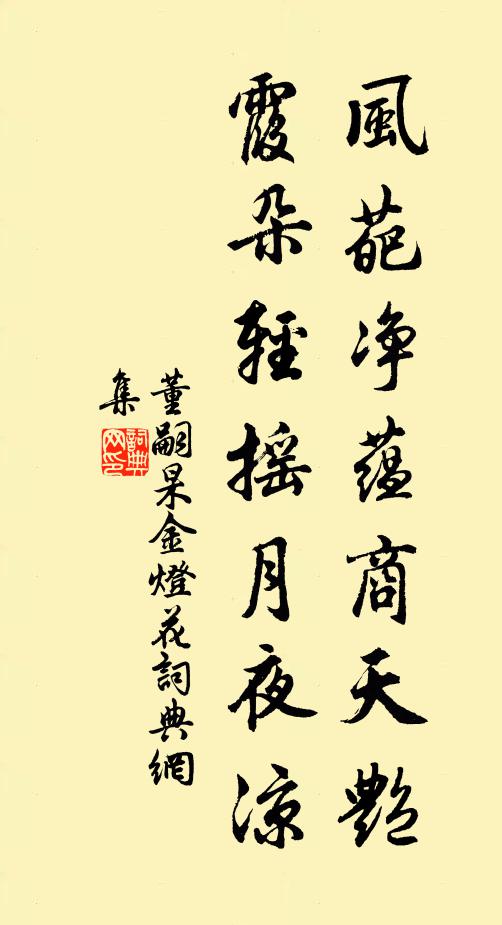 風葩净蕴商天艷
霞朵輕摇月夜凉
董嗣杲金燈花詞典網
集
詞典
网印